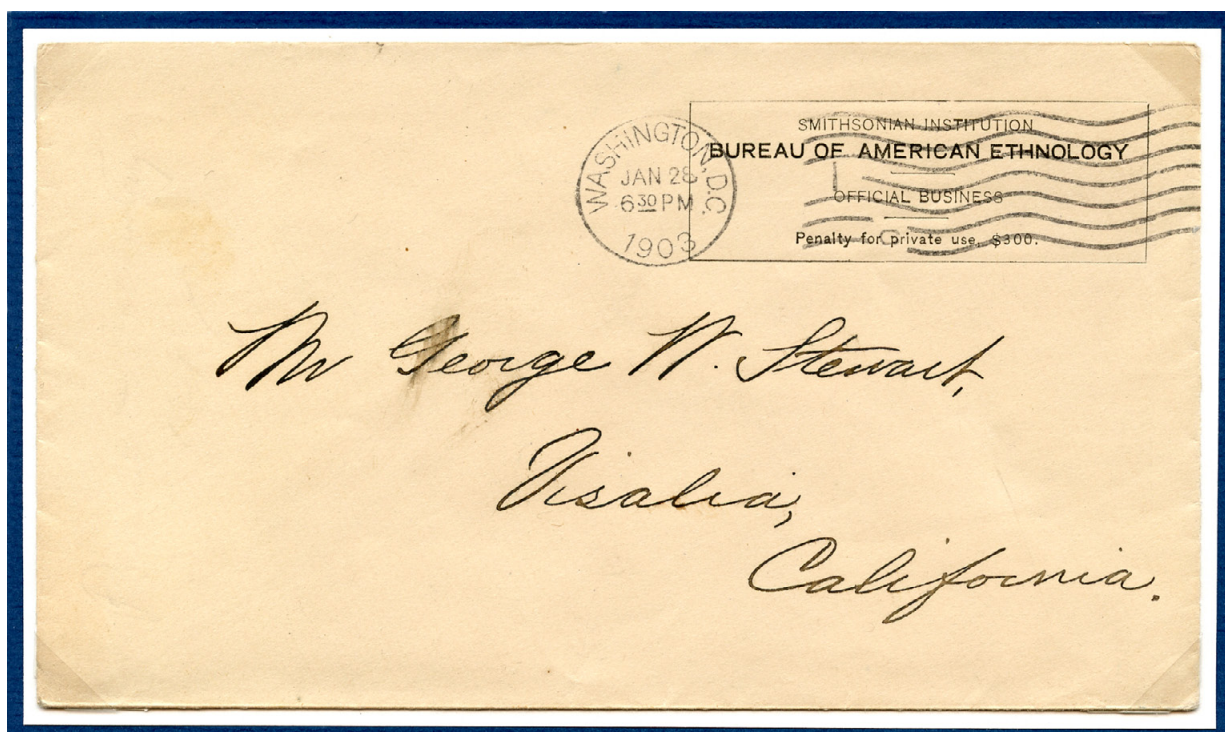 WASHINGTON, D.C.
JAN 28
6 30 PM
1903
SMITHSONIAN INSTITUTION
BUREAU OF AMERICAN ETHNOLOGY
OFFICIAL BUSINESS
Penalty for private use, $300.
Mr George W. Stewart,
Visalia,
California.